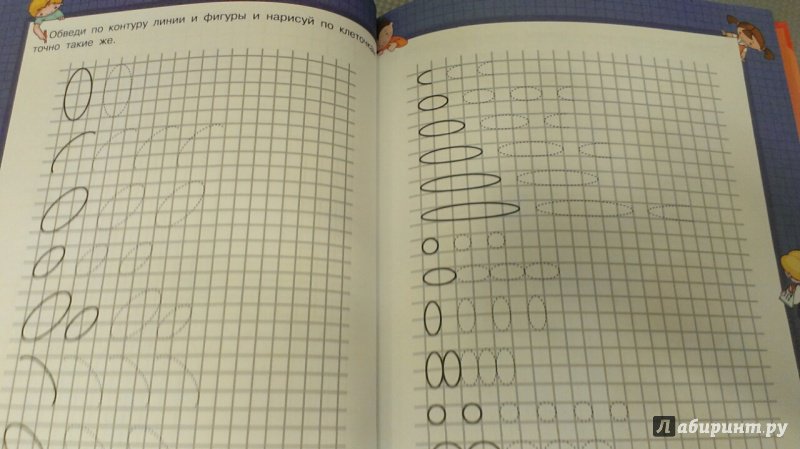 Обведи по контуру линии и фигуры и нарисуй по клеточкам
точно такие же.
Лабиринт.ру